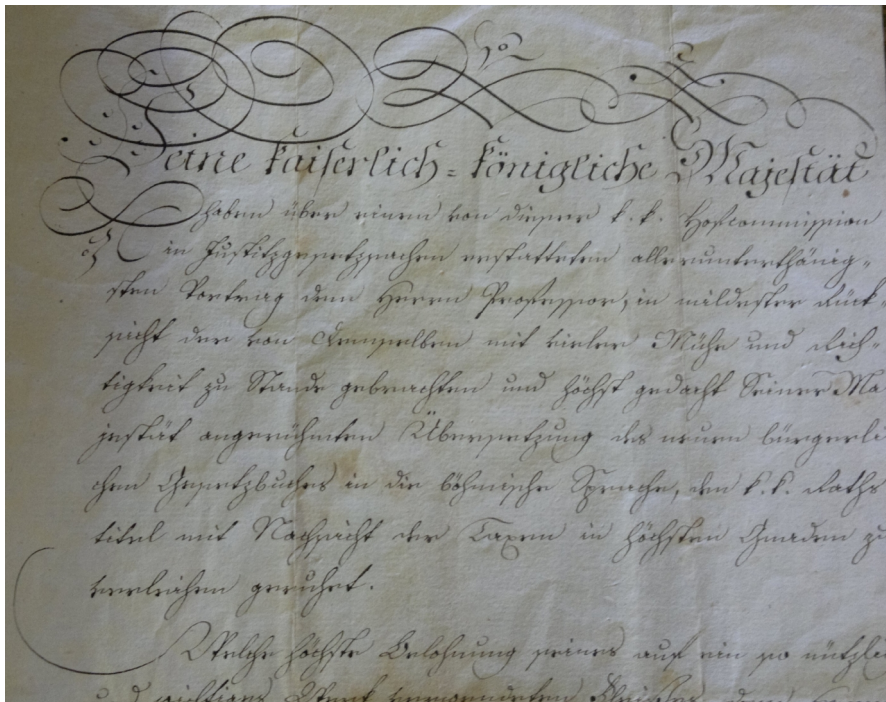 Seine kaiserlich=königliche Majestät
haben über einem von dieser k. k. Hofcommission
in Justitzgesetzsachen erstatteten allerunterthänig=
sten Vortrag dem Herrn Professor, in mildester Rück=
sicht der von demselben mit vieler Mühe und Rich=
tigkeit zu Stande gebrachten und höchst gedacht Seiner Ma
jestät angerühmten Übersetzung des neuen bürgerli
chen Gesetzbuches in die böhmische Sprache, den k. k. Raths
titel mit Nachsicht der Taxen in höchsten Gnaden zu
verleihen geruhet.
Welche höchste Belohnung seines auf ein so nützli
und wichtiges Werk verwendeten Fleißes